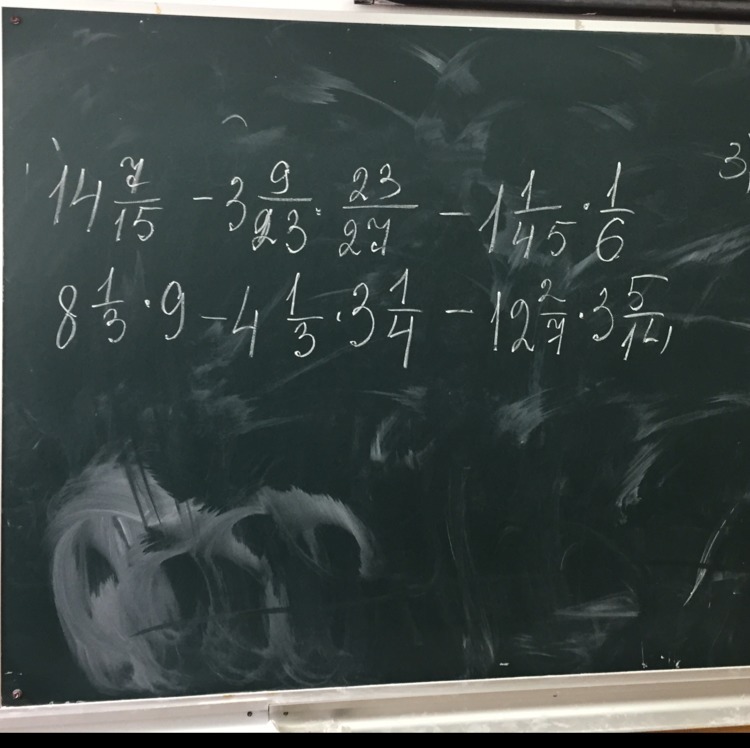 14 7/15 - 3 9/23 · 23/27 - 1 1/45 · 1/6
8 1/3 · 9 - 4 1/3 · 3 1/4 - 12 2/7 · 3 5/14